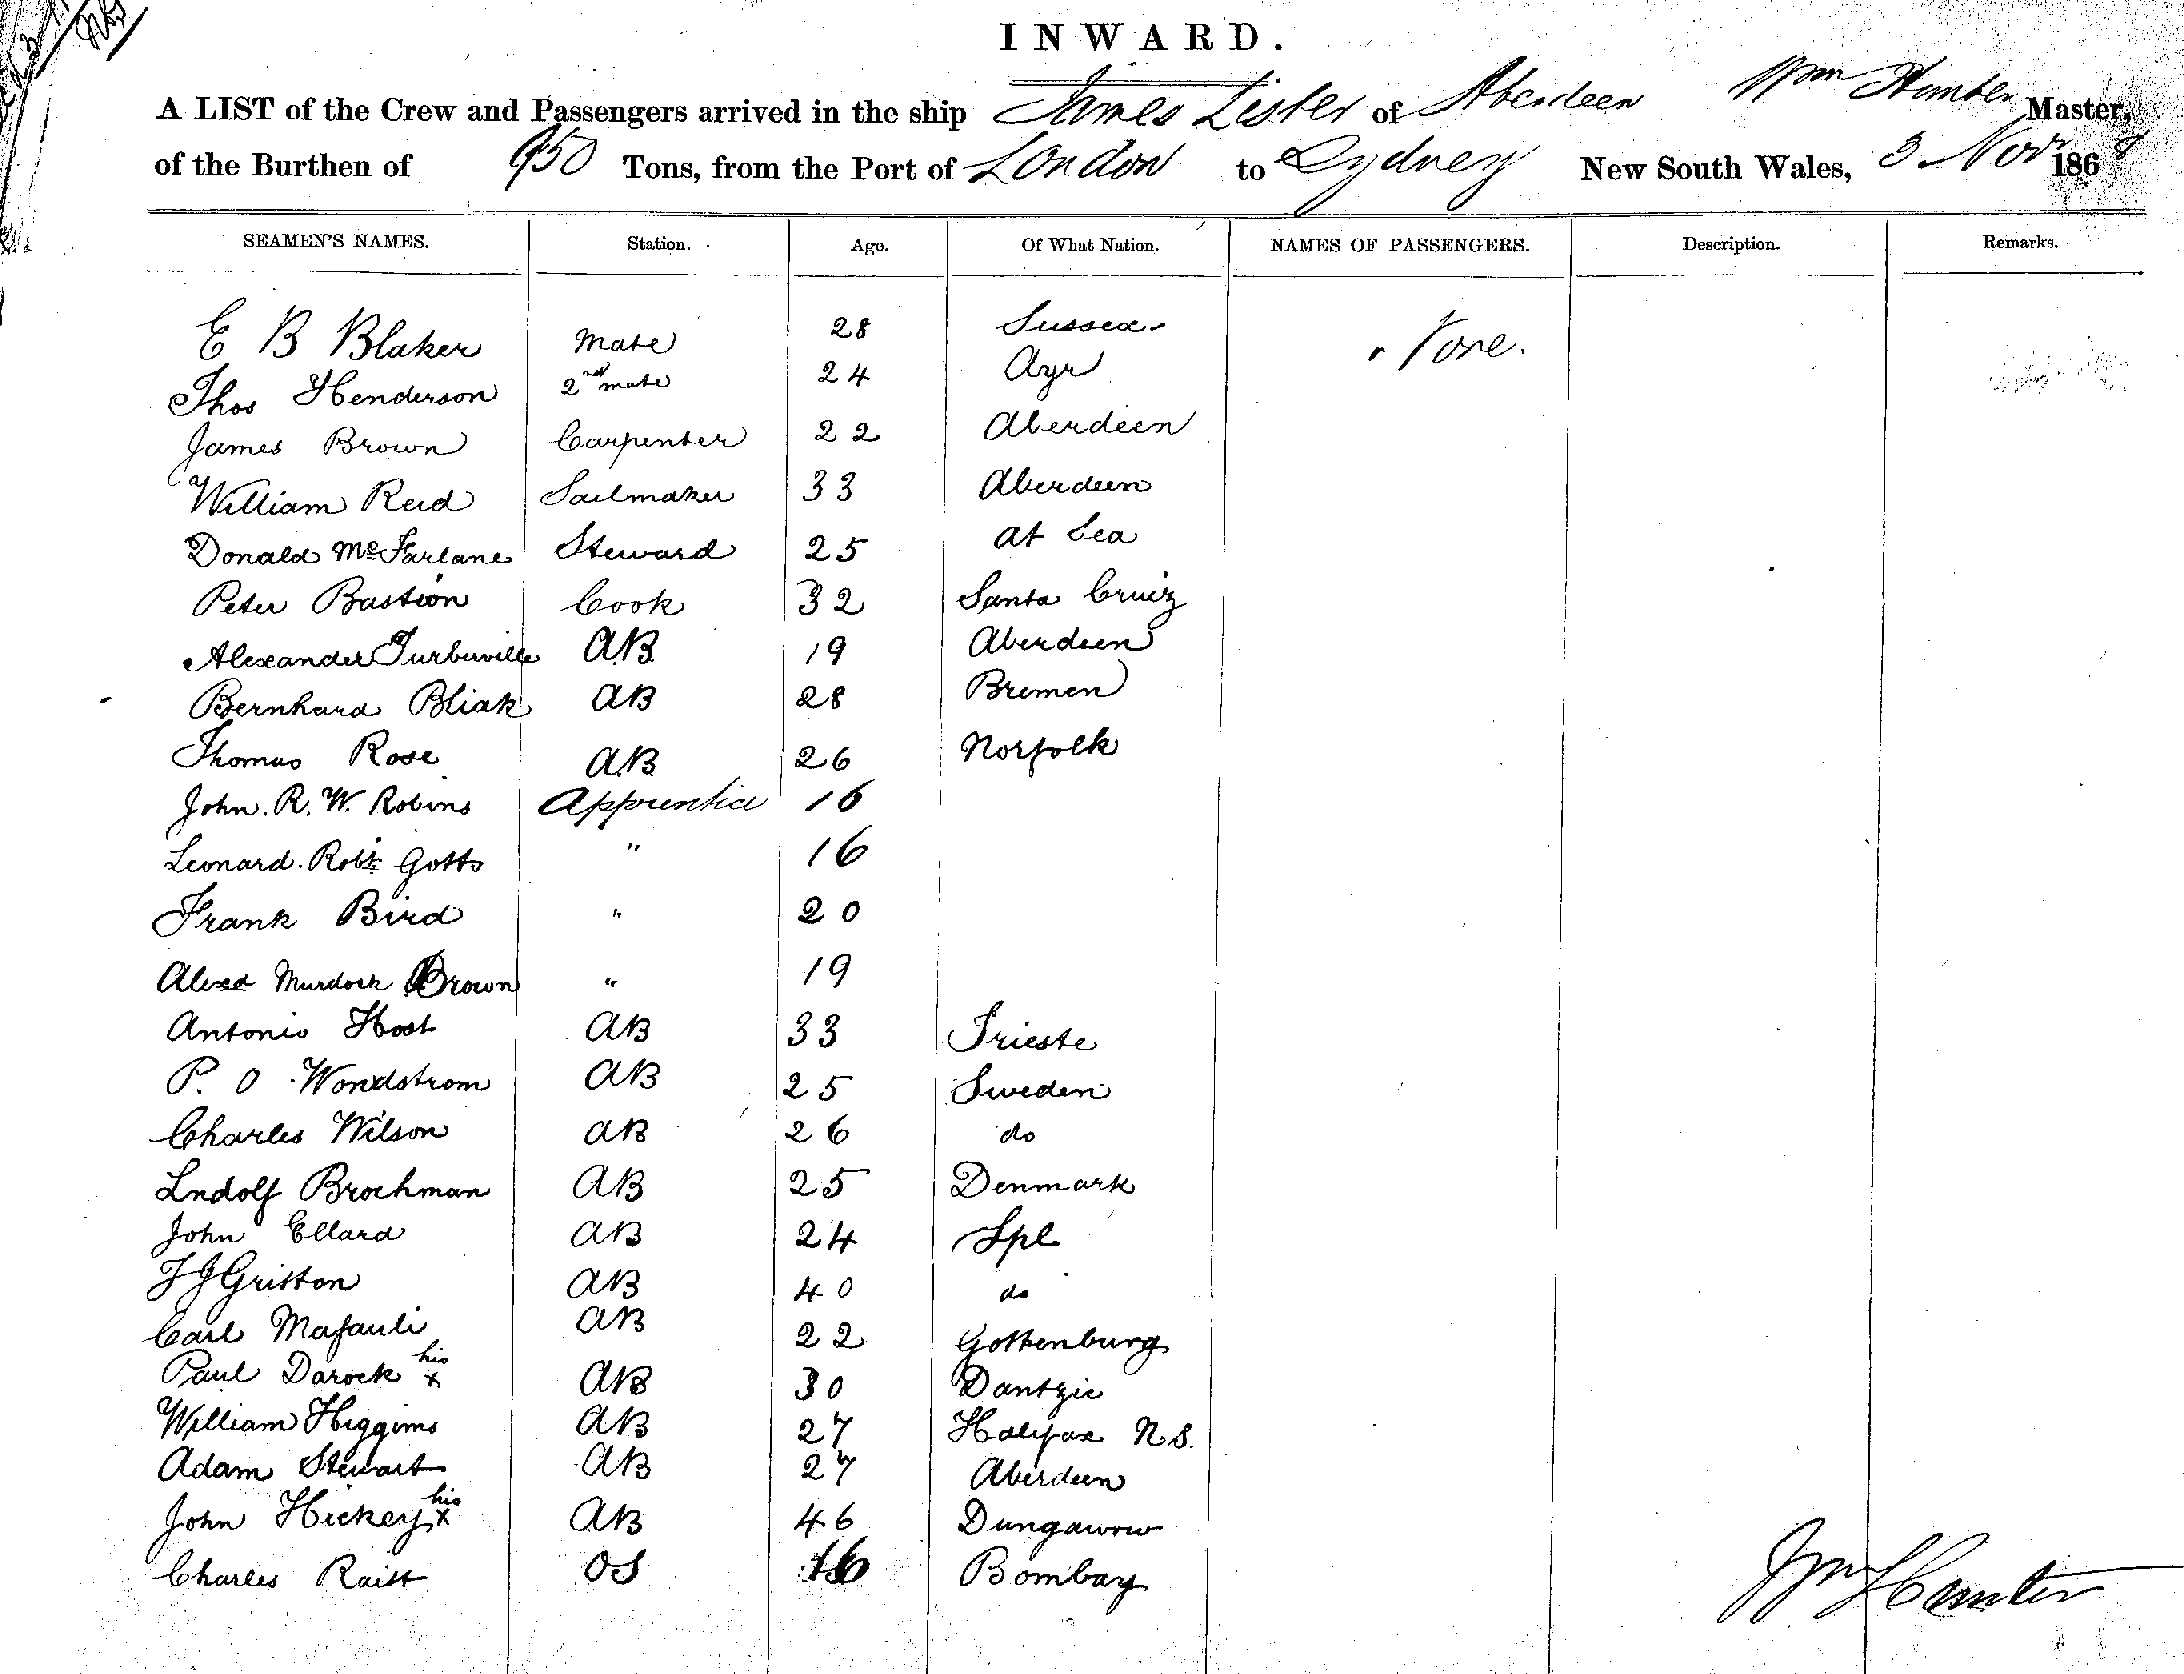 INWARD.
A LIST of the Crew and Passengers arrived in the ship James Lister of Aberdeen Wm Hunter Master,
of the Burthen of 950 Tons, from the Port of London to Sydney New South Wales, 3 Novr 186
SEAMEN'S NAMES. Station. Age. Of What Nation. NAMES OF PASSENGERS. Description. Remarks.
E B Blaker Mate 28 Sussex None.
Thos Henderson 2nd mate 24 Ayr
James Brown Carpenter 22 Aberdeen
William Reid Sailmaker 33 Aberdeen
Donald McFarlane Steward 25 at Sea
Peter Bastion Cook 32 Santa Cruiz
Alexander Turberville AB 19 Aberdeen
Bernhard Bliak AB 28 Bremen
Thomas Rose AB 26 Norfolk
John. R. W. Robins Apprentice 16
Leonard. Robt Gotts " 16
Frank Bird " 20
Alexd Murdock Brown " 19
Antonio Host AB 33 Trieste
P. O Wondstrom AB 25 Sweden
Charles Wilson AB 26 do
Lndolf Brochman AB 25 Denmark
John Ellard AB 24 Lpl
J J Gritton AB 40 do
Carl Mafauli AB 22 Gottenburg
Paul Darock his x AB 30 Dantzic
William Higgins AB 27 Halifax N.S.
Adam Stewart AB 27 Aberdeen
John Hickey his x AB 46 Dungawow
Charles Raitt OS 16 Bombay
Wm Hunter